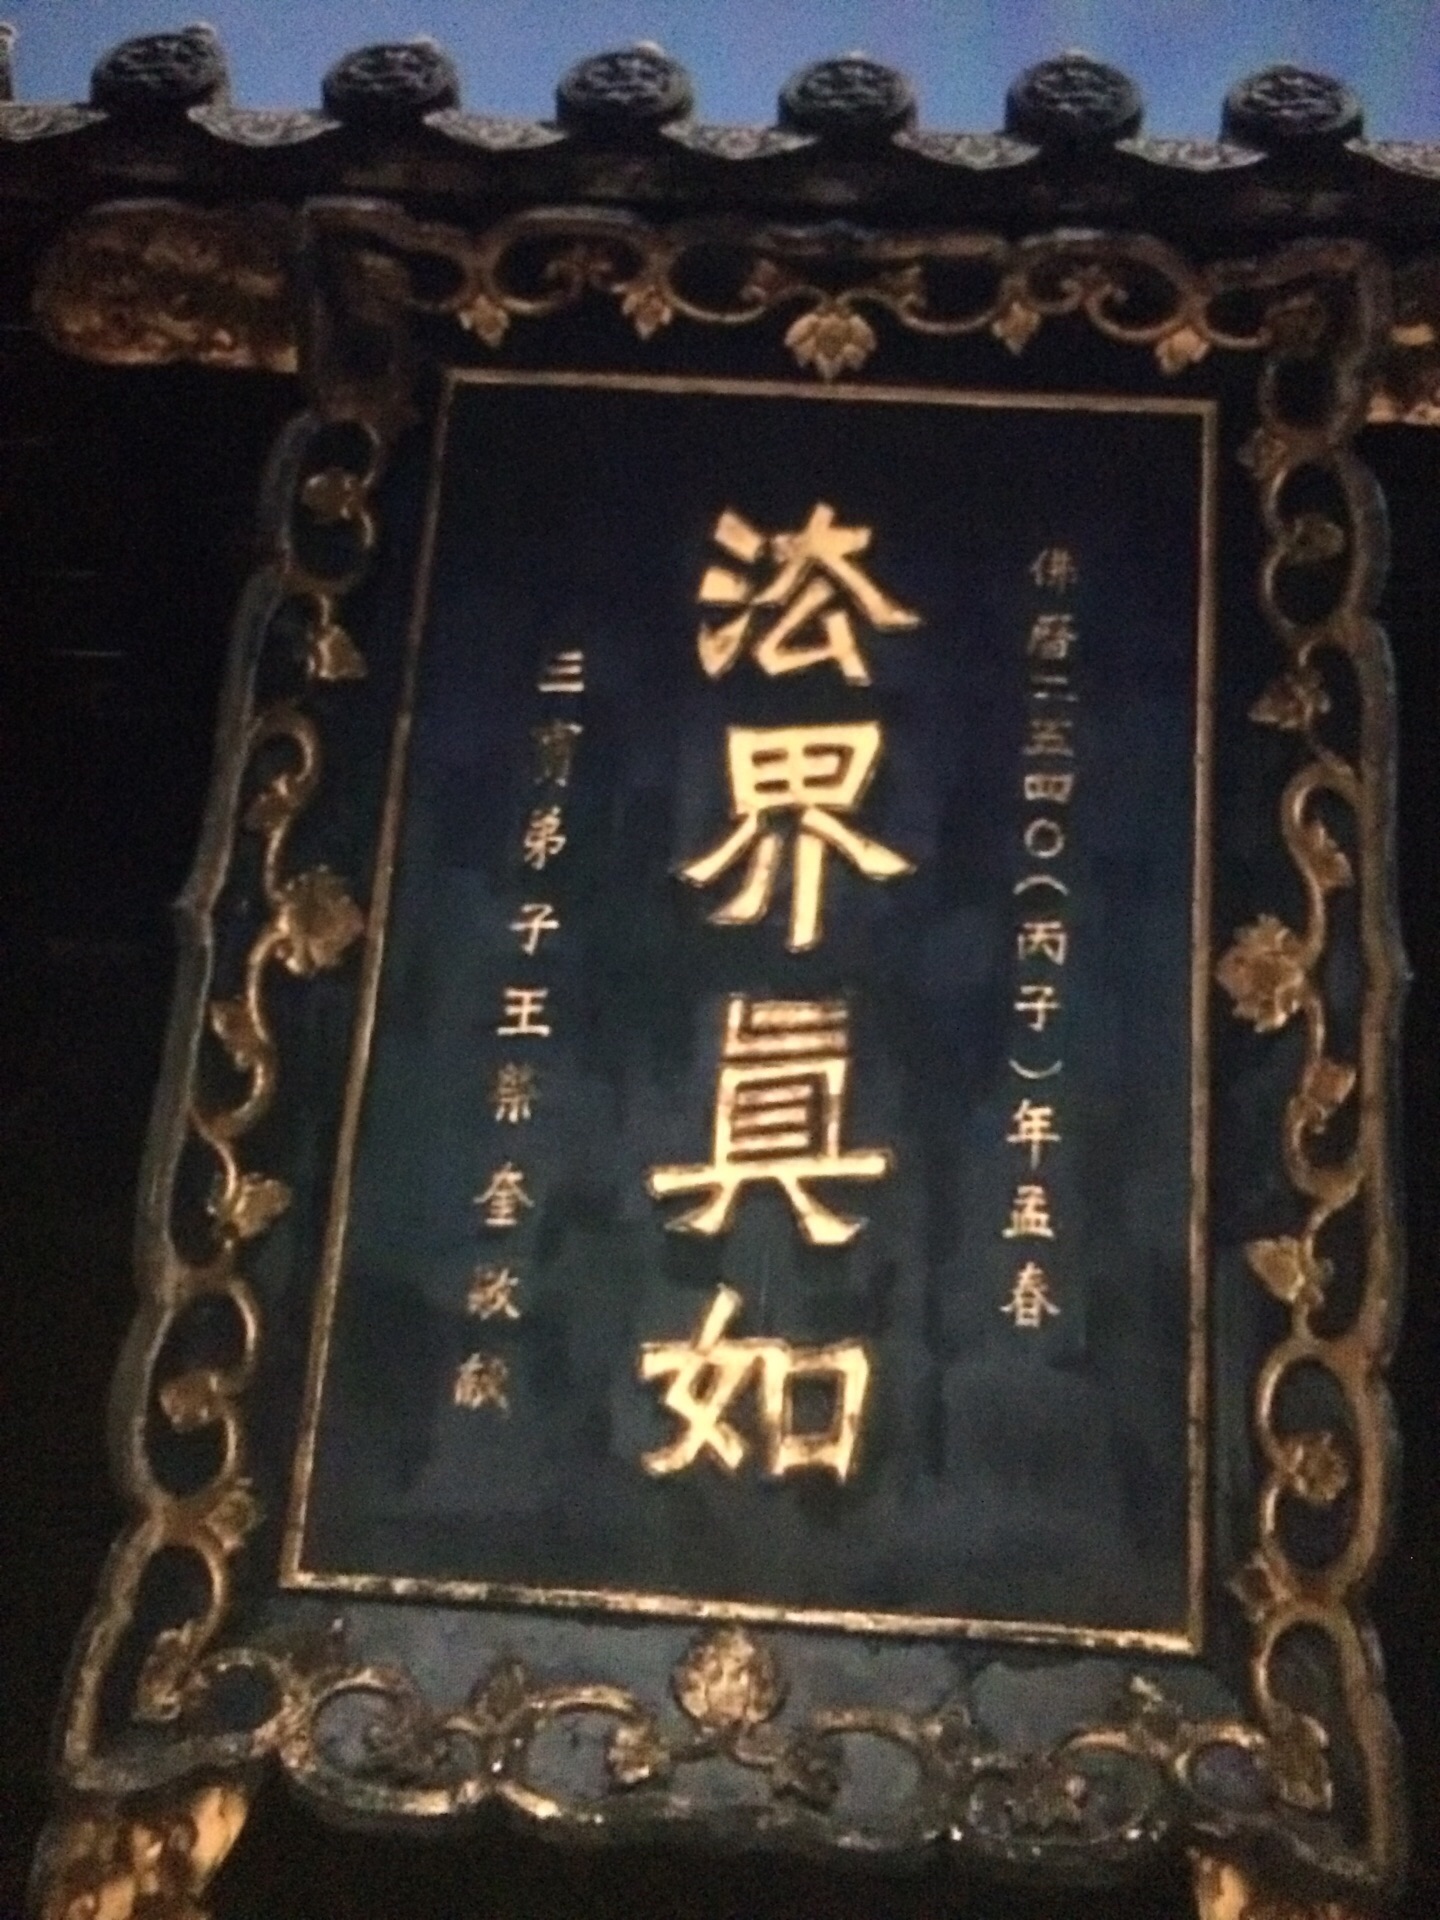 佛曆二五四〇(丙子)年孟春
法界真如
三寶弟子王榮奎敬獻